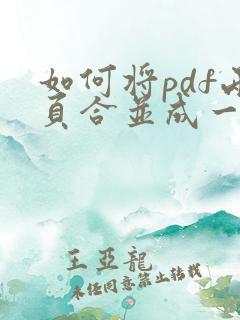 如何将pdf两
页合并成一
王亞龍
未经同意禁止转载